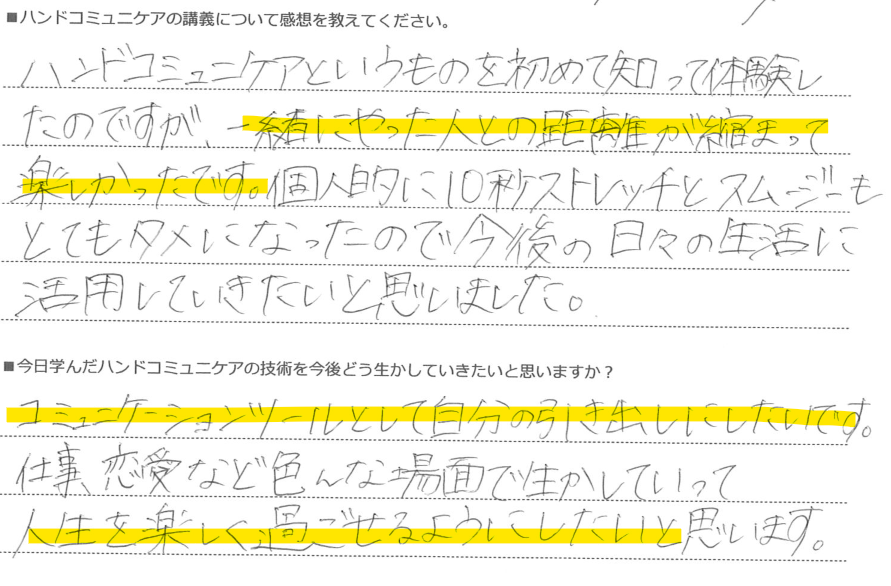 ■ハンドコミュニケアの講義について感想を教えてください。
ハンドコミュニケアというものを初めて知って体験し
たのですが、一緒にやった人との距離が縮まって
楽しかったです。個人的に10秒ストレッチとスムージーも
とてもタメになったので今後の日々の生活に
活用していきたいと思いました。
■今日学んだハンドコミュニケアの技術を今後どう生かしていきたいと思いますか？
コミュニケーションツールとして自分の引き出しにしたいです。
仕事、恋愛など色んな場面で生かしていって
人生を楽しく過ごせるようにしたいと思います。